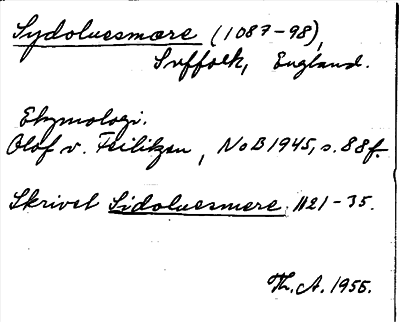 Sydoluesmere (1087-98),
Suffolk, England.
Etymologi.
Olof v. Feilitzen, NoB 1945, s. 88f.
Skrivet Sidoluesmere, 1121-35.
Th. A. 1955.